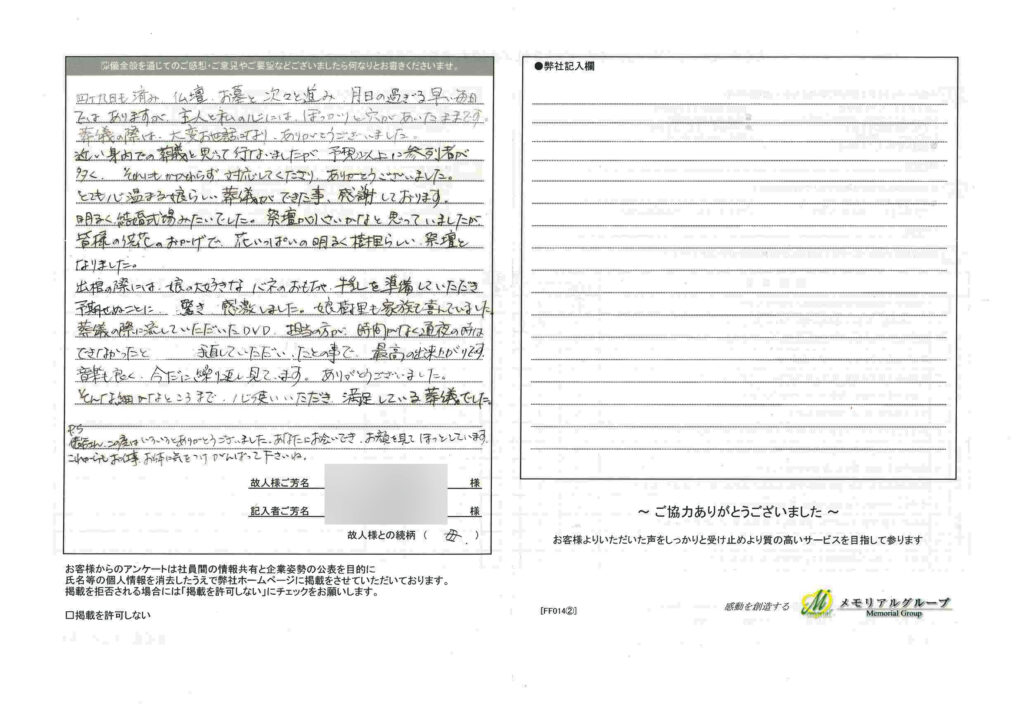 葬儀全般を通じてのご感想・ご意見やご要望などございましたら何なりとお書きくださいませ。
四十九日も済み、仏壇、お墓と次々と進み、月日の過ぎる早い毎日
ではありますが、主人と私の心には、ぽっかりと穴があいたままです。
葬儀の際は、大変お世話になり、ありがとうございました。
近い身内での葬儀と思って行ないましたが、予想以上に参列者が
多く、それにもかかわらず対応してくださり、ありがとうございました。
とても心温まる娘らしい葬儀ができた事、感謝しております。
明るく結婚式場みたいでした。祭壇が小さいかなと思っていましたが
皆様の供花のおかげで、花いっぱいの明るく樹里らしい祭壇と
なりました。
出棺の際には、娘の大好きなバネのおもちゃ、牛乳を準備していただき
予期せぬことに、驚き、感激しました。娘樹里も家族も喜んでいました。
葬儀の際に流していただいたDVD、担当の方が、時間がなく通夜の時は
できなかったと 直していただいたとの事で、最高の出来上がりです。
音楽も良く、今だに繰り返し見ています。ありがとうございました。
そんな細かなところまで、心使いいただき、満足している葬儀でした。
P.S
さん、この度はいろいろとありがとうございました。あなたにお会いでき、お顔を見てほっとしています。
これからもお仕事、お体に気をつけがんばって下さいね。
故人様ご芳名 様
記入者ご芳名 様
故人様との続柄（ 母 ）
お客様からのアンケートは社員間の情報共有と企業姿勢の公表を目的に
氏名等の個人情報を消去したうえで弊社ホームページに掲載をさせていただいております。
掲載を拒否される場合には「掲載を許可しない」にチェックをお願いします。
□掲載を許可しない
●弊社記入欄
～ ご協力ありがとうございました ～
お客様よりいただいた声をしっかりと受け止めより質の高いサービスを目指して参ります
[FF014②]
感動を創造する
メモリアルグループ
Memorial Group